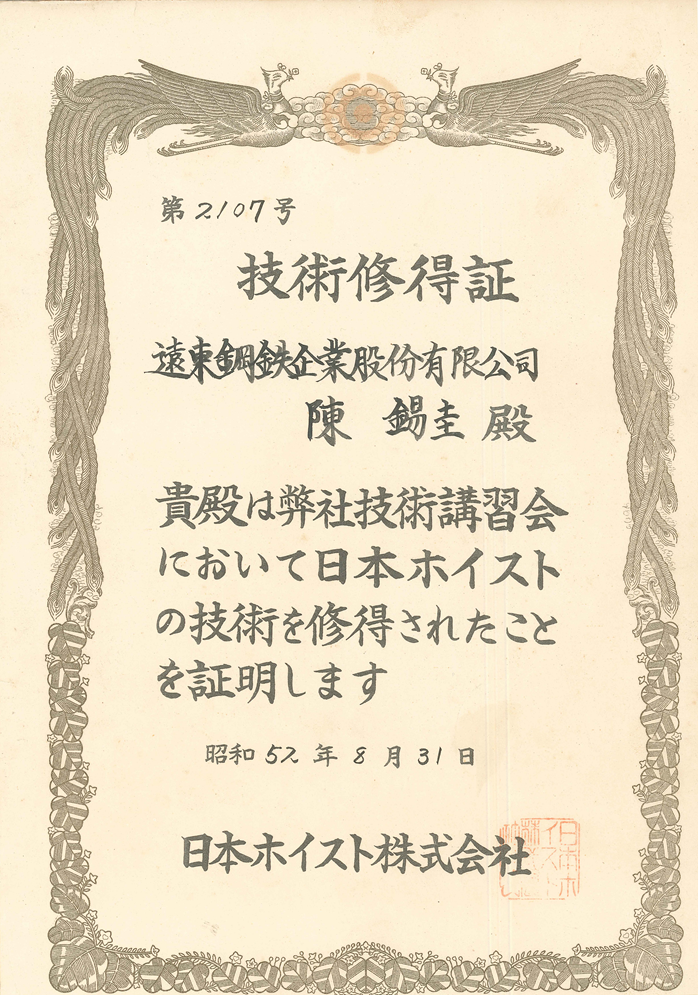 第2107号
技術修得証
遠東鋼鉄企業股份有限公司
陳 錫圭 殿
貴殿は弊社技術講習会
において日本ホイスト
の技術を修得されたこと
を証明します
昭和52年8月31日
日本ホイスト株式会社